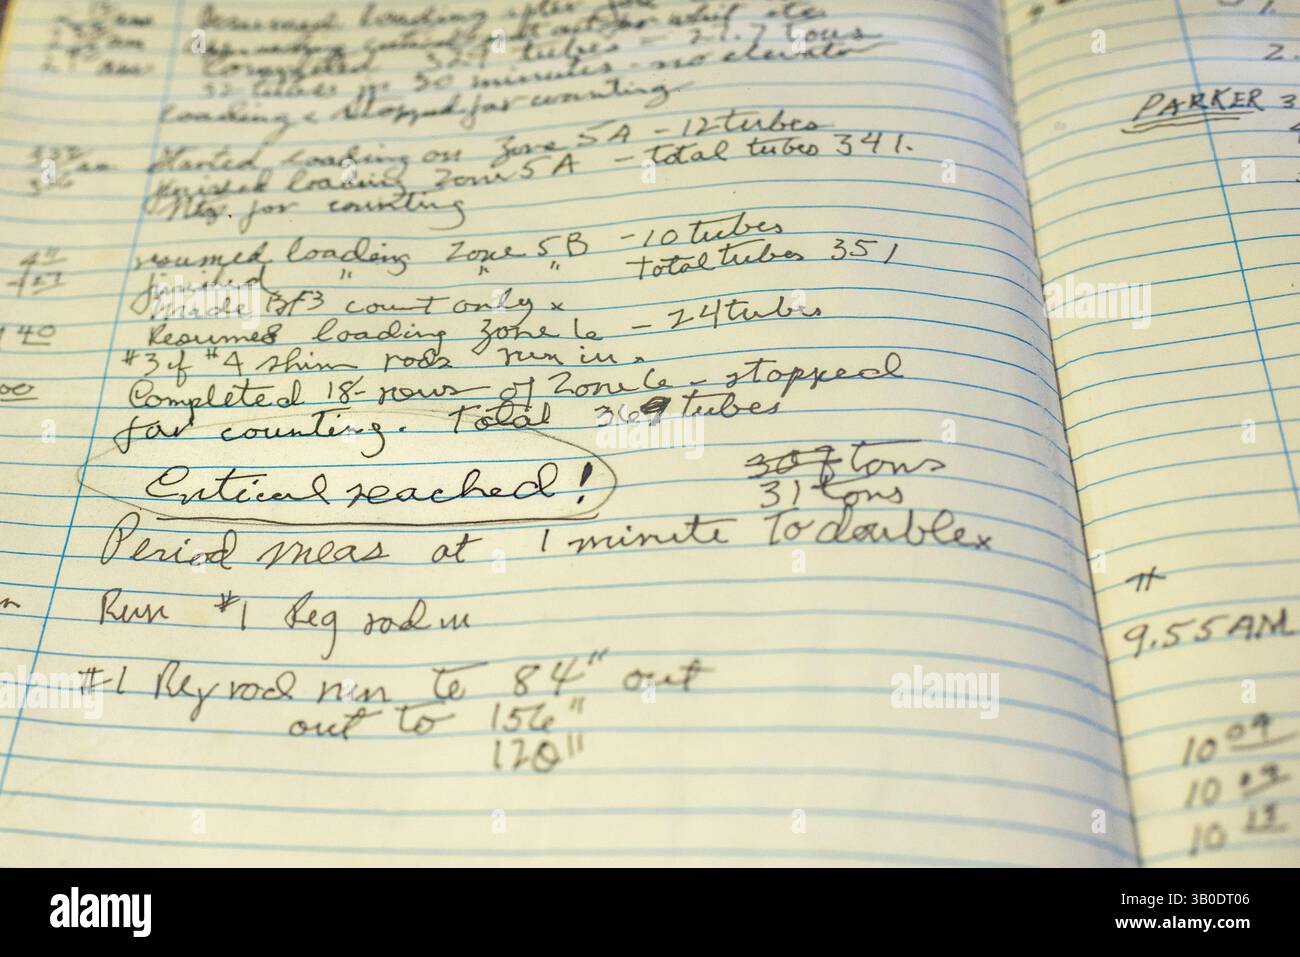 am Resumed loading after
am
Completed 329 tubes - 27.7 tons
am 32 tubes in 30 minutes - no elevator
loading & stopped for counting.
am Started loading on Zone 5A - 12 tubes
finished loading Zone 5A - total tubes 341.
for counting
resumed loading Zone 5B - 10 tubes
finished " " " Total tubes 351
made BF3 count only x
40 Resumed loading Zone 6 - 24 tubes
#3 & #4 shim rods run in.
00 Completed 18-rows of Zone 6 - stopped
for counting. Total 369 tubes
Critical reached! 30.7 tons
31 tons
Period meas at 1 minute to double x
Run #1 Reg rod in
#1 Reg rod run to 84" out
out to 156"
120"
PARKER 3
2.
9.55 AM
10 09
10
10
alamy
Image ID: 3B0DT06
www.alamy.com